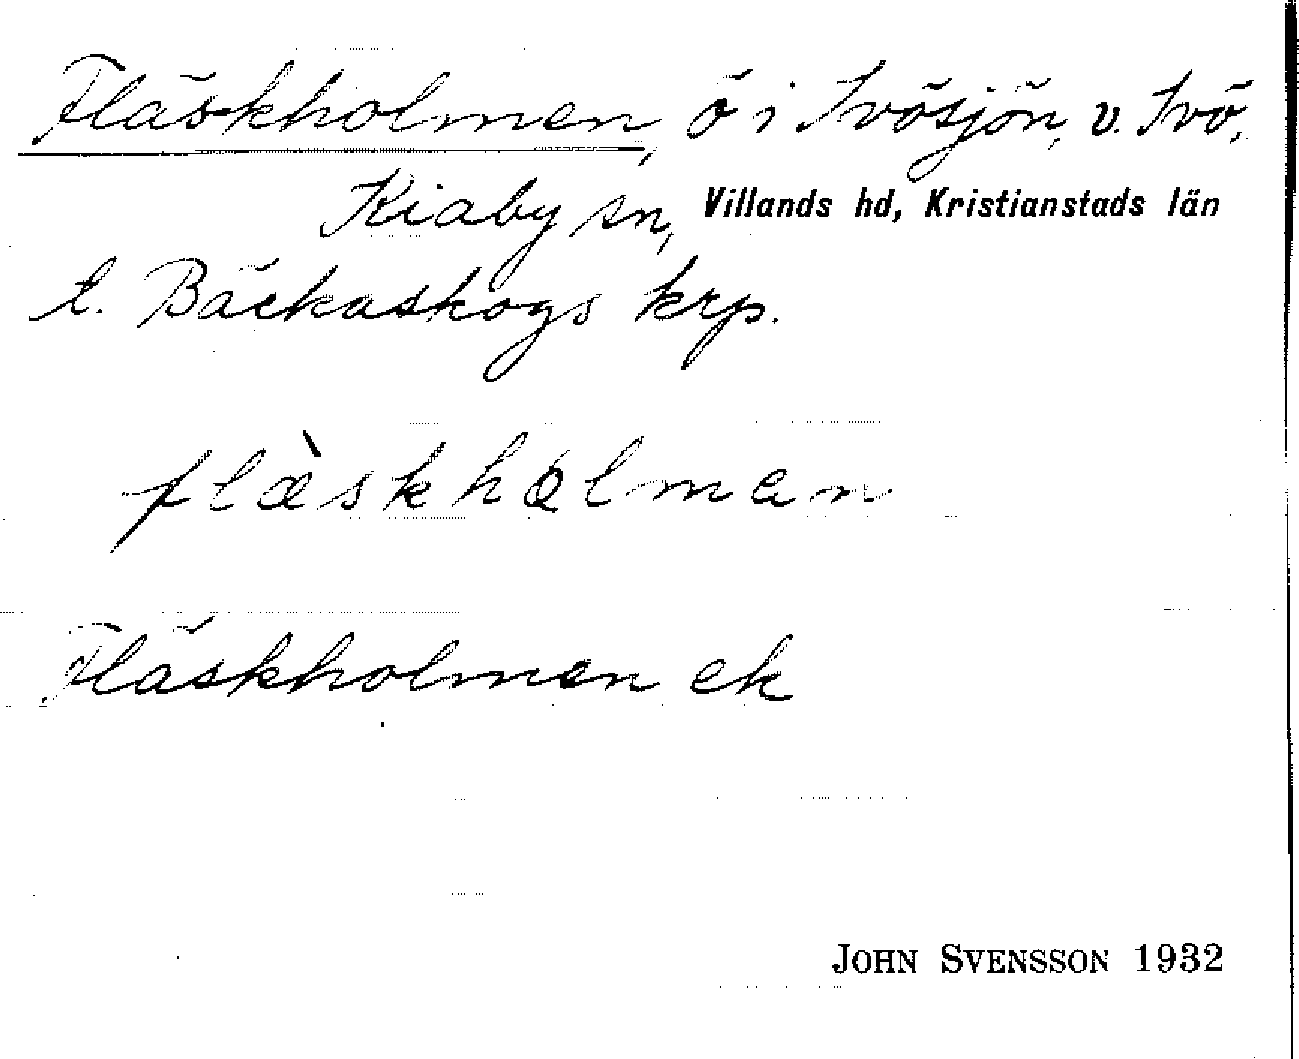 Fläskholmen, ö i Ivösjön, v. Ivö,
Kiaby sn, Villands hd, Kristianstads län
t. Bäckaskogs krp.
flæ̀skhɷlmɘn
Fläskholmen ek
JOHN SVENSSON 1932